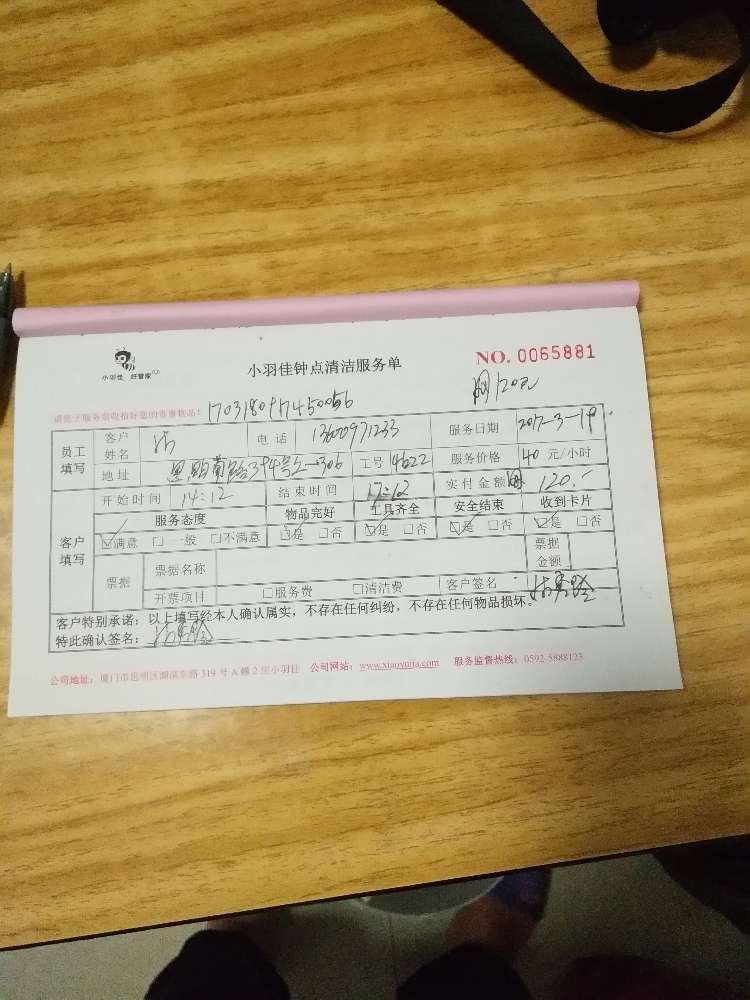 小羽佳 好管家
小羽佳钟点清洁服务单
NO. 0065881
网120元
请您于服务前收拾好您的贵重物品!
员工填写 客户姓名 电话 13600971233 服务日期 2017-3-19
地址 思明 工号 4622 服务价格 40 元/小时
客户填写 开始时间 14:12 结束时间 17:12 实付金额 网 120.-
服务态度 物品完好 工具齐全 安全结束 收到卡片
☑满意 □一般 □不满意 ☑是 □否 ☑是 □否 ☑是 □否 ☑是 □否
票据 票据名称 票据金额
开票项目 □服务费 □清洁费 客户签名
客户特别承诺:以上填写经本人确认属实,不存在任何纠纷,不存在任何物品损坏。
特此确认签名:
公司地址:厦门市思明区湖滨东路 319 号 A 幢 2 层小羽佳 公司网站:www.xiaoyujia.com 服务监督热线:0592-5888123